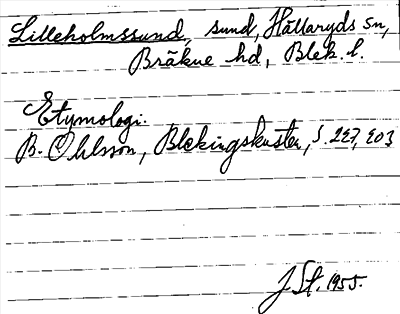 Lilleholmssund, sund, Hällaryds sn,
Bräkne hd, Blek. l.
Etymologi.
B. Ohlsson, Blekingskusten, s. 227, 203
J St. 1955.